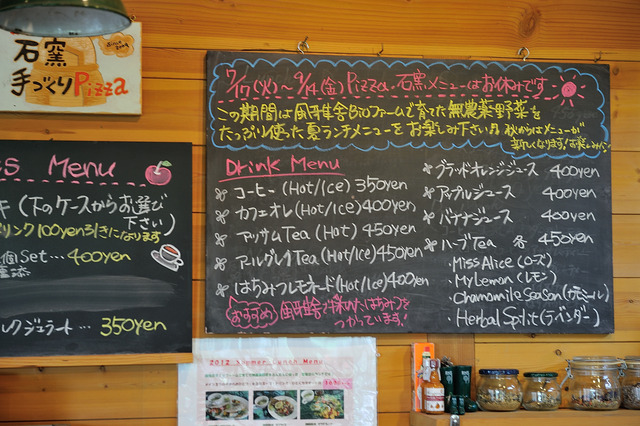 石窯
手づくりPizza
s Menu
(下のケースからお選び
下さい)
リンク100yen引きになります
個Set…400yen
ジェラート…350yen
Pizza・石窯メニューはお休みです
この期間は風可集舎Bioファームで育てた無農薬野菜を
たっぷり使った夏ランチメニューをお楽しみ下さい!! 秋からはメニューが
新しくなります!お楽しみに
Drink Menu
コーヒー (Hot/Ice) 350yen
カフェオレ(Hot/Ice)400yen
アッサムTea (Hot/Ice)450yen
アールグレイTea(Hot/Ice)450yen
はちみつレモネード(Hot/Ice)400yen
おすすめ
つかっています!
ブラッドオレンジジュース 400yen
アップルジュース 400yen
バナナジュース 400yen
ハーブTea 各 450yen
・Miss Alice (ローズ)
・My Lemon (レモン)
・Chamomile Season (カモミール)
・Herbal Split (ラベンダー)
2012 Summer Lunch Menu